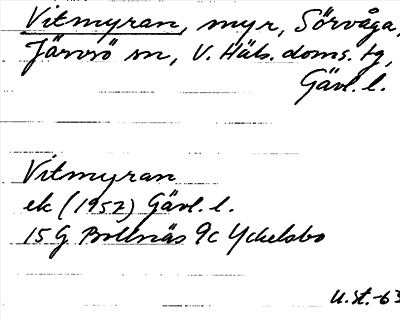 Vitmyran, myr, Sörvåga,
Järvsö sn, V. Häls. doms. tg,
Gävl. l.
Vitmyran
ek (1952) Gävl. l.
15G Bollnäs 9c Yckelsbo
U.St.-63